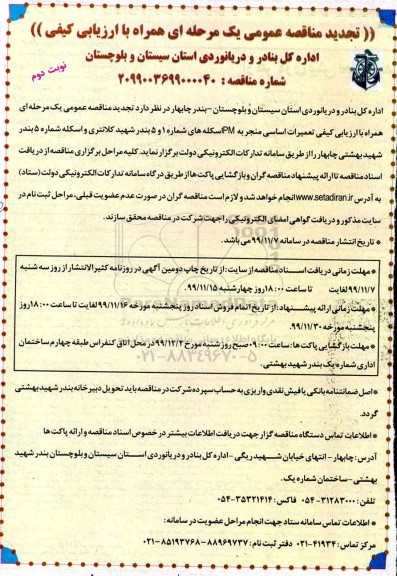 (( تجدید مناقصه عمومی یک مرحله ای همراه با ارزیابی کیفی ))
اداره کل بنادر و دریانوردی استان سیستان و بلوچستان
شماره مناقصه : ۲۰۹۹۰۰۳۶۹۹۰۰۰۰۴۰
نوبت دوم
اداره کل بنادر و دریانوردی استان سیستان و بلوچستان -بندر چابهار در نظر دارد تجدید مناقصه عمومی یک مرحله ای
همراه با ارزیابی کیفی تعمیرات اساسی منجر به PM اسکله های شماره ۱ و ۵ بندر شهید کلانتری و اسکله شماره ۵ بندر
شهید بهشتی چابهار را از طریق سامانه تدارکات الکترونیکی دولت برگزار نماید. کلیه مراحل برگزاری مناقصه از دریافت
اسناد مناقصه تا ارائه پیشنهاد مناقصه گران و بازگشایی پاکت ها از طریق درگاه سامانه تدارکات الکترونیکی دولت (ستاد)
به آدرس www.setadiran.ir انجام خواهد شد و لازم است مناقصه گران در صورت عدم عضویت قبلی، مراحل ثبت نام در
سایت مذکور و دریافت گواهی امضای الکترونیکی را جهت شرکت در مناقصه محقق سازند.
* تاریخ انتشار مناقصه در سامانه ۹۹/۱۱/۷ می باشد.
* مهلت زمانی دریافت اسناد مناقصه از سایت : از تاریخ چاپ دومین آگهی در روزنامه کثیرالانتشار از روز سه شنبه
۹۹/۱۱/۷ لغایت تا ساعت ۱۸:۰۰ روز چهارشنبه ۹۹/۱۱/۱۵.
* مهلت زمانی ارائه پیشنهاد : از تاریخ اتمام فروش اسناد روز پنجشنبه مورخه ۹۹/۱۱/۱۶ لغایت تا ساعت ۱۸:۰۰ روز
پنجشنبه مورخه ۹۹/۱۱/۳۰.
* مهلت بازگشایی پاکت ها : ساعت ۰۹:۰۰ صبح روز شنبه مورخ ۹۹/۱۲/۲ در محل اتاق کنفرانس طبقه چهارم ساختمان
اداری شماره یک بندر شهید بهشتی.
۰۲۱-۸۸۳۴۹۶۷۰-۵
* اصل ضمانتنامه بانکی یا فیش نقدی واریزی به حساب سپرده شرکت در مناقصه باید تحویل دبیرخانه بندر شهید بهشتی
گردد.
* اطلاعات تماس دستگاه مناقصه گزار جهت دریافت اطلاعات بیشتر در خصوص اسناد مناقصه و ارائه پاکت ها
آدرس : چابهار - انتهای خیابان شهید ریگی - اداره کل بنادر و دریانوردی استان سیستان و بلوچستان بندر شهید
بهشتی - ساختمان شماره یک.
تلفن : ۳۱۲۸۳۰۰۰-۰۵۴ فاکس : ۳۵۳۲۱۴۱۴-۰۵۴
* اطلاعات تماس سامانه ستاد جهت انجام مراحل عضویت در سامانه :
مرکز تماس : ۴۱۹۳۴-۰۲۱ دفتر ثبت نام : ۸۸۹۶۹۷۳۷ - ۸۵۱۹۳۷۶۸-۰۲۱